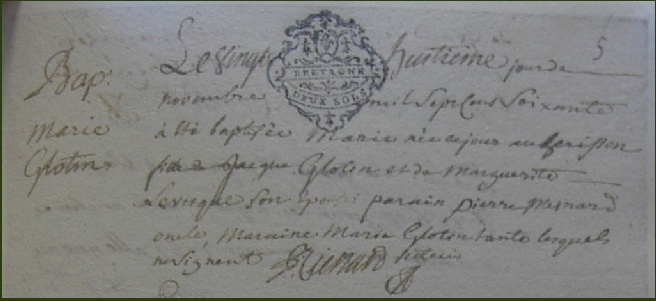 5
Le vingt huitième jour de
Bap.
BRETAGNE
DEUX SOLS
novembre mil Sept Cens Soixante
Marie
à été baptisée Marie née ce jour au herisson
Glotin
fille de Jacque Glotin et de Marguerite
Levesque Son Epouse parain pierre mesnard
oncle, Maraine Marie Glotin tante lesquels
ne signent